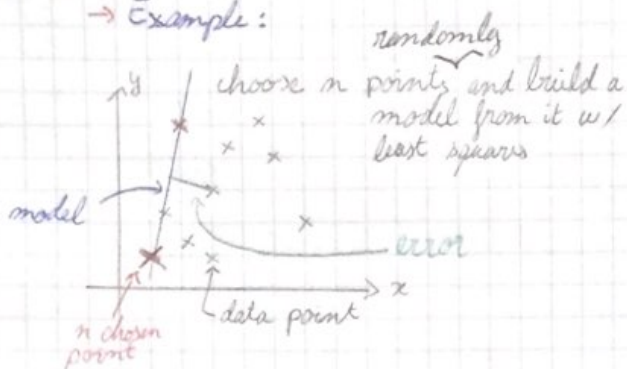 → Example:
randomly
y choose n points and build a
model from it w/
least squares
model
error
x
data point
n chosen
point